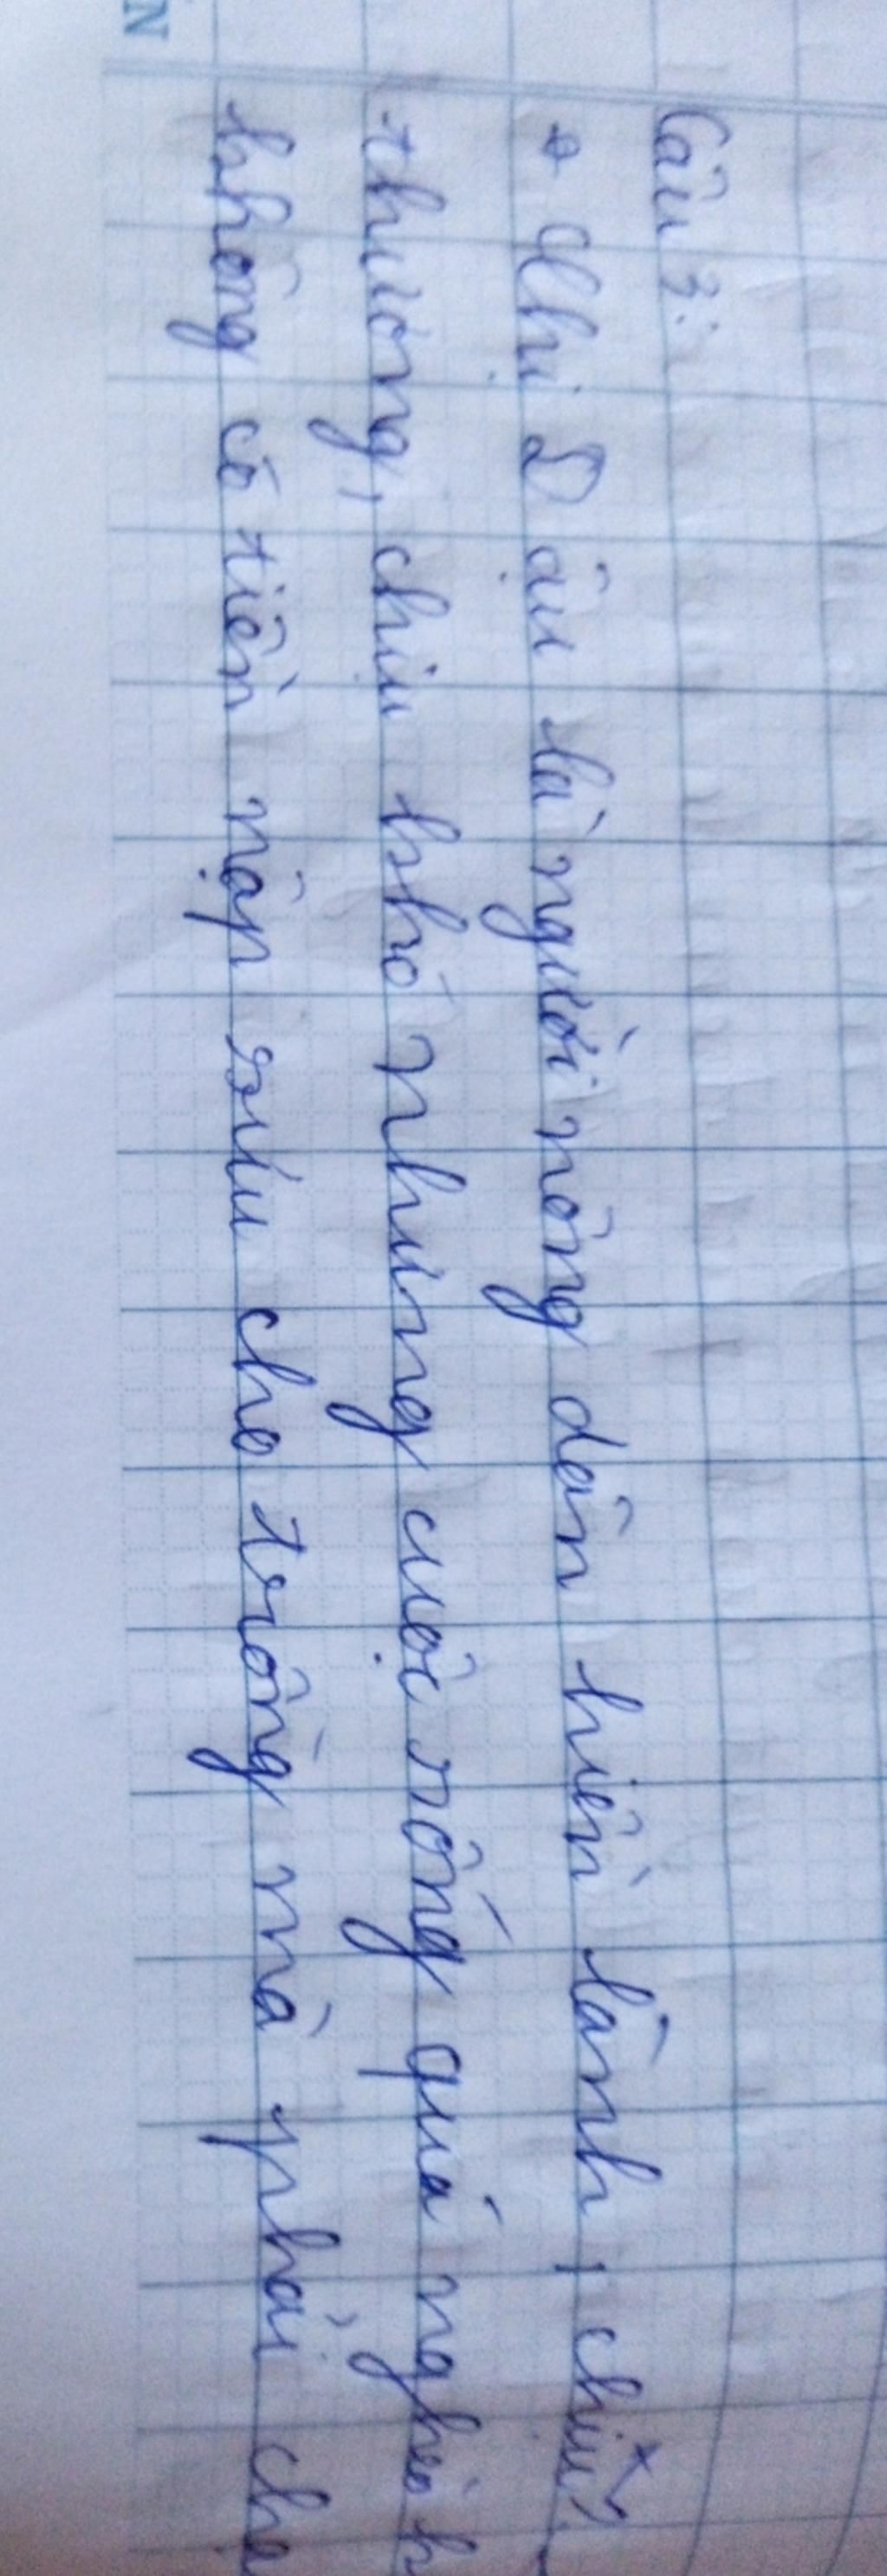 Câu 3:
+ Chị Dậu là người nông dân hiền lành,
thương, chịu khó nhưng cuộc sống quá nghèo
không có tiền nộp sưu cho trồng mà phải